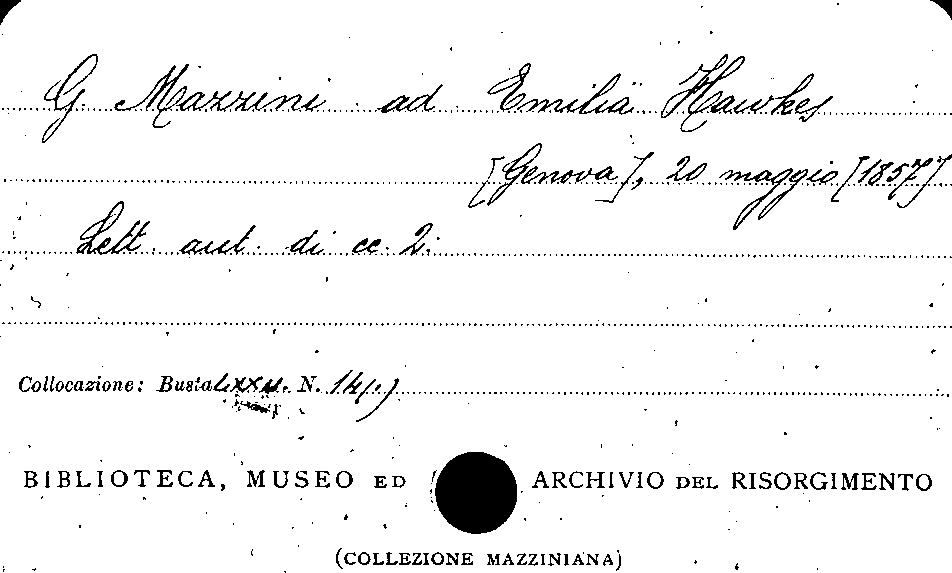 G. Mazzini ad Emilia Hawkes
[Genova], 20 maggio [1857]
Lett. aut. di cc. 2.
Collocazione: Busta LXXII. N. 14(.)
BIBLIOTECA, MUSEO ED ARCHIVIO DEL RISORGIMENTO
(COLLEZIONE MAZZINIANA)